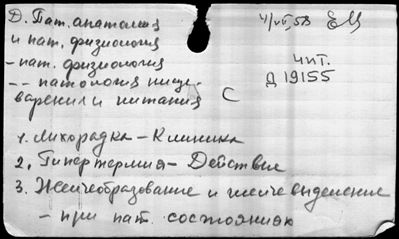 Д. Пат. анатомия
и пат. физиология
- пат. физиология
-- патология пище-
варения и питания
С
4/VII, 58 ЕМ
чит.
Д 19155
1. Лихорадка - Клиника
2. Гипертермия - Действие
3. Желчеобразование и желчевыделение
- при пат. состояниях